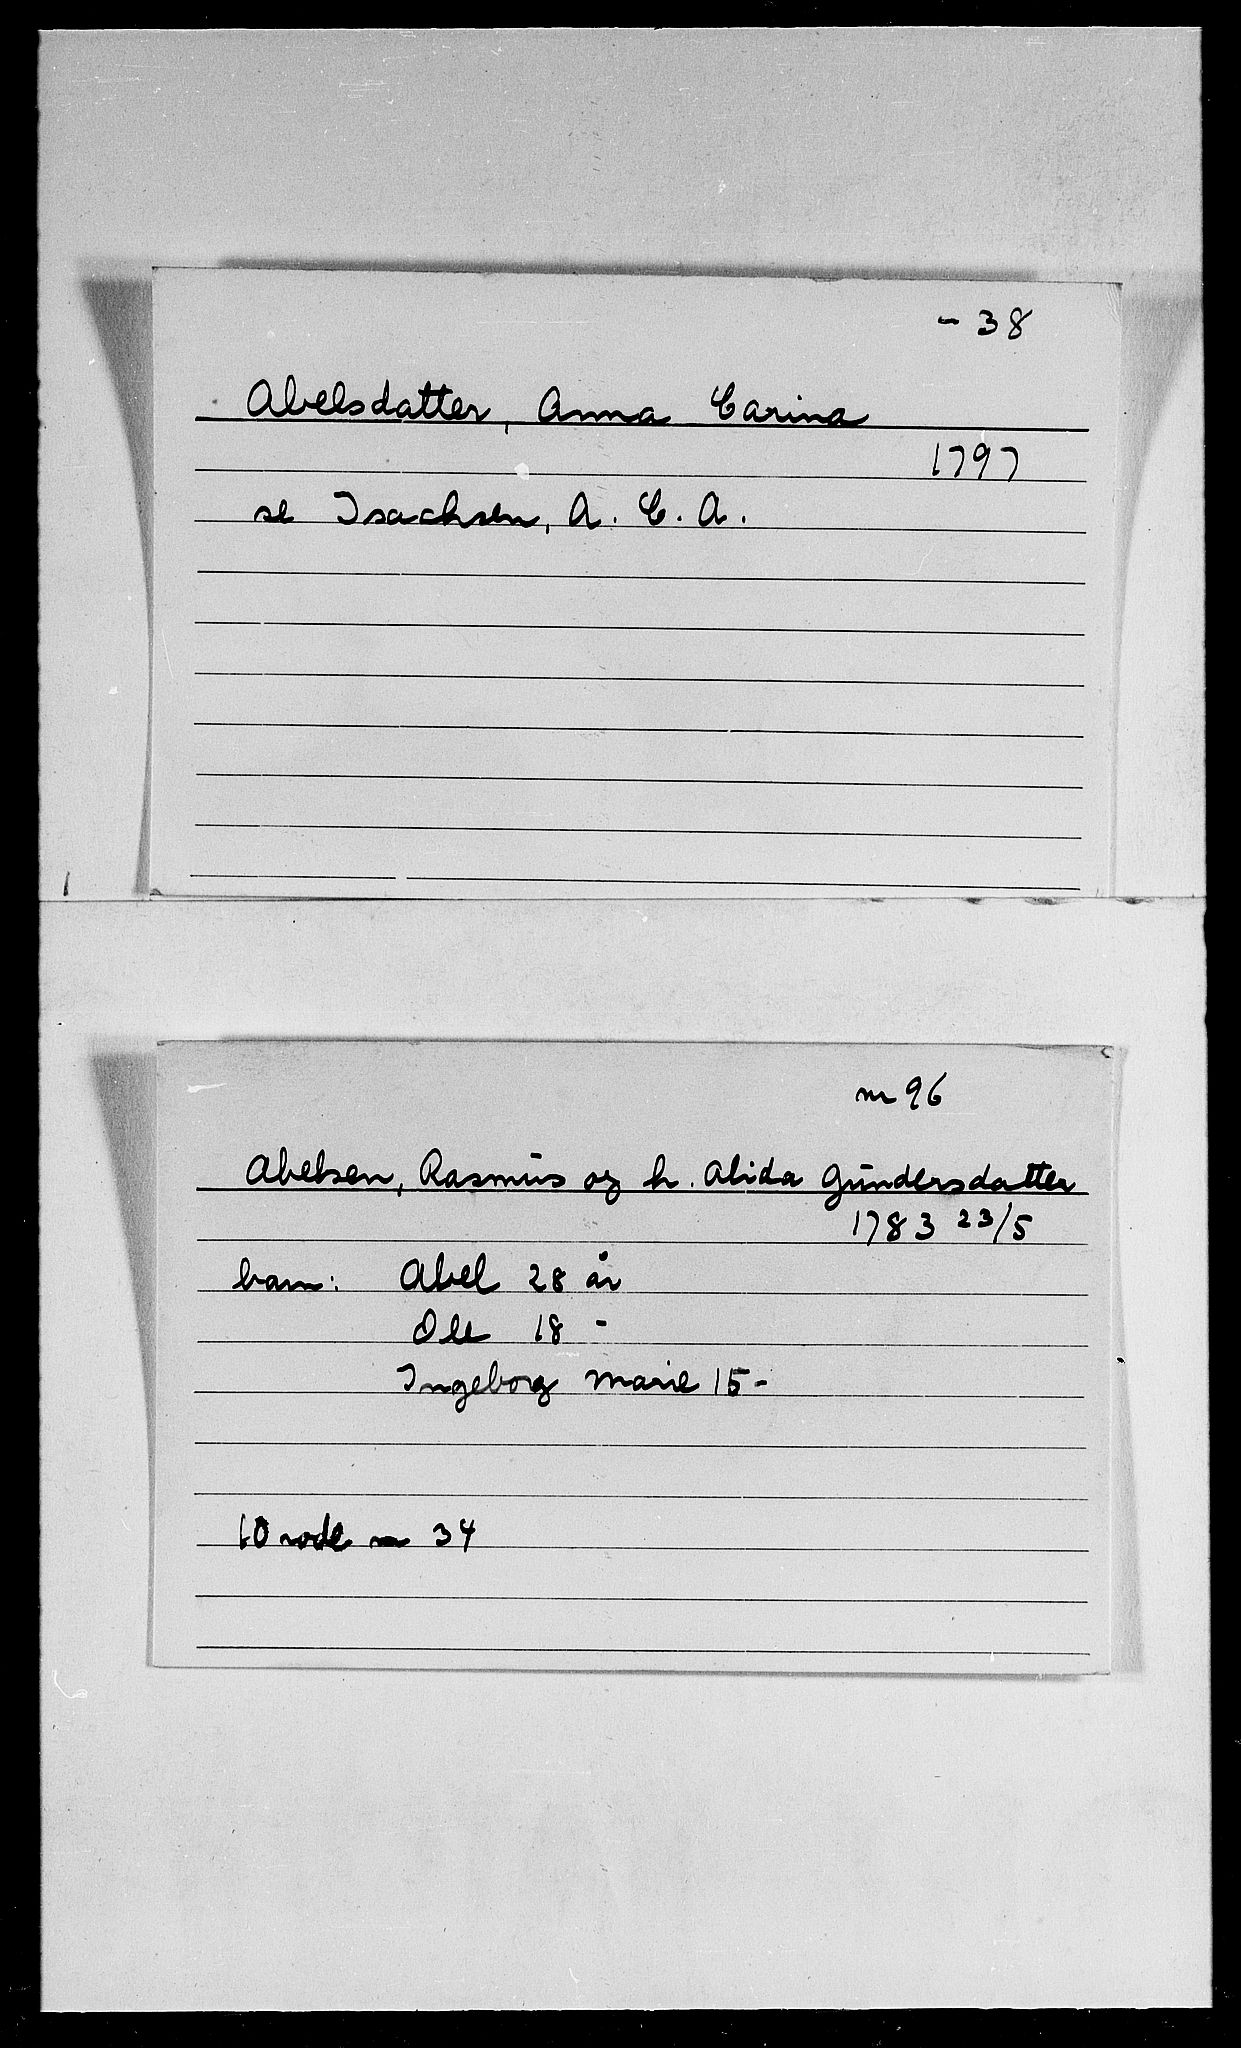 - 38
Abelsdatter, Anna Carina
1797
se Isachsen, A. C. A.
nr 96
Abelsen, Rasmus og h. Alida Gundersdatter
1783 23/5
barn: Abel 28 år
Ole 18 -
Ingeborg Marie 15 -
10 rode nr 34